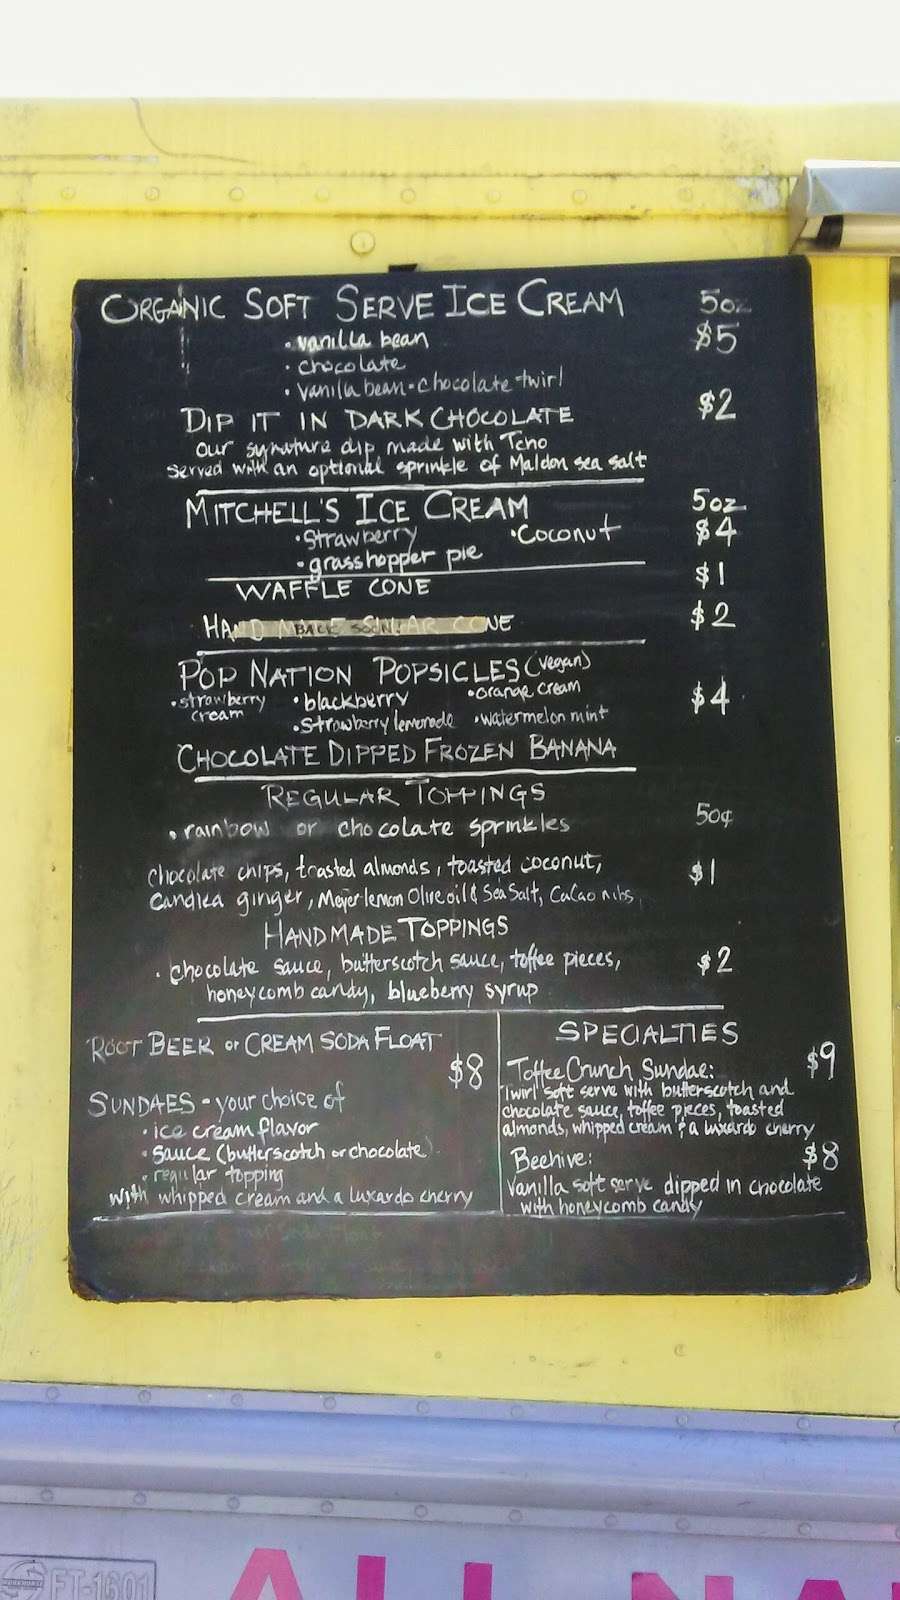 ORGANIC SOFT SERVE ICE CREAM 5oz
• vanilla bean $5
• chocolate
• vanilla bean • chocolate twirl
DIP IT IN DARK CHOCOLATE $2
our signature dip made with Tcho
served with an optional sprinkle of Maldon sea salt
MITCHELL'S ICE CREAM 5oz
• Strawberry • Coconut $4
• grasshopper pie
WAFFLE CONE $1
HAND MADE SUGAR CONE $2
BACK SOON!
POP NATION POPSICLES (vegan)
• strawberry cream • blackberry • orange cream $4
• Strawberry lemonade • watermelon mint
CHOCOLATE DIPPED FROZEN BANANA
REGULAR TOPPINGS
• rainbow or chocolate sprinkles 50¢
chocolate chips, toasted almonds, toasted coconut, $1
candied ginger, Meyer lemon Olive oil & Sea Salt, CaCao nibs
HANDMADE TOPPINGS
• chocolate sauce, butterscotch sauce, toffee pieces, $2
honeycomb candy, blueberry syrup
ROOT BEER or CREAM SODA FLOAT
$8
SUNDAES - your choice of
• ice cream flavor
• sauce (butterscotch or chocolate)
• regular topping
with whipped cream and a luxardo cherry
SPECIALTIES
Toffee Crunch Sundae: $9
Twirl soft serve with butterscotch and
chocolate sauce, toffee pieces, toasted
almonds, whipped cream & a luxardo cherry
Beehive: $8
Vanilla soft serve dipped in chocolate
with honeycomb candy
FT-1601
ALL NA